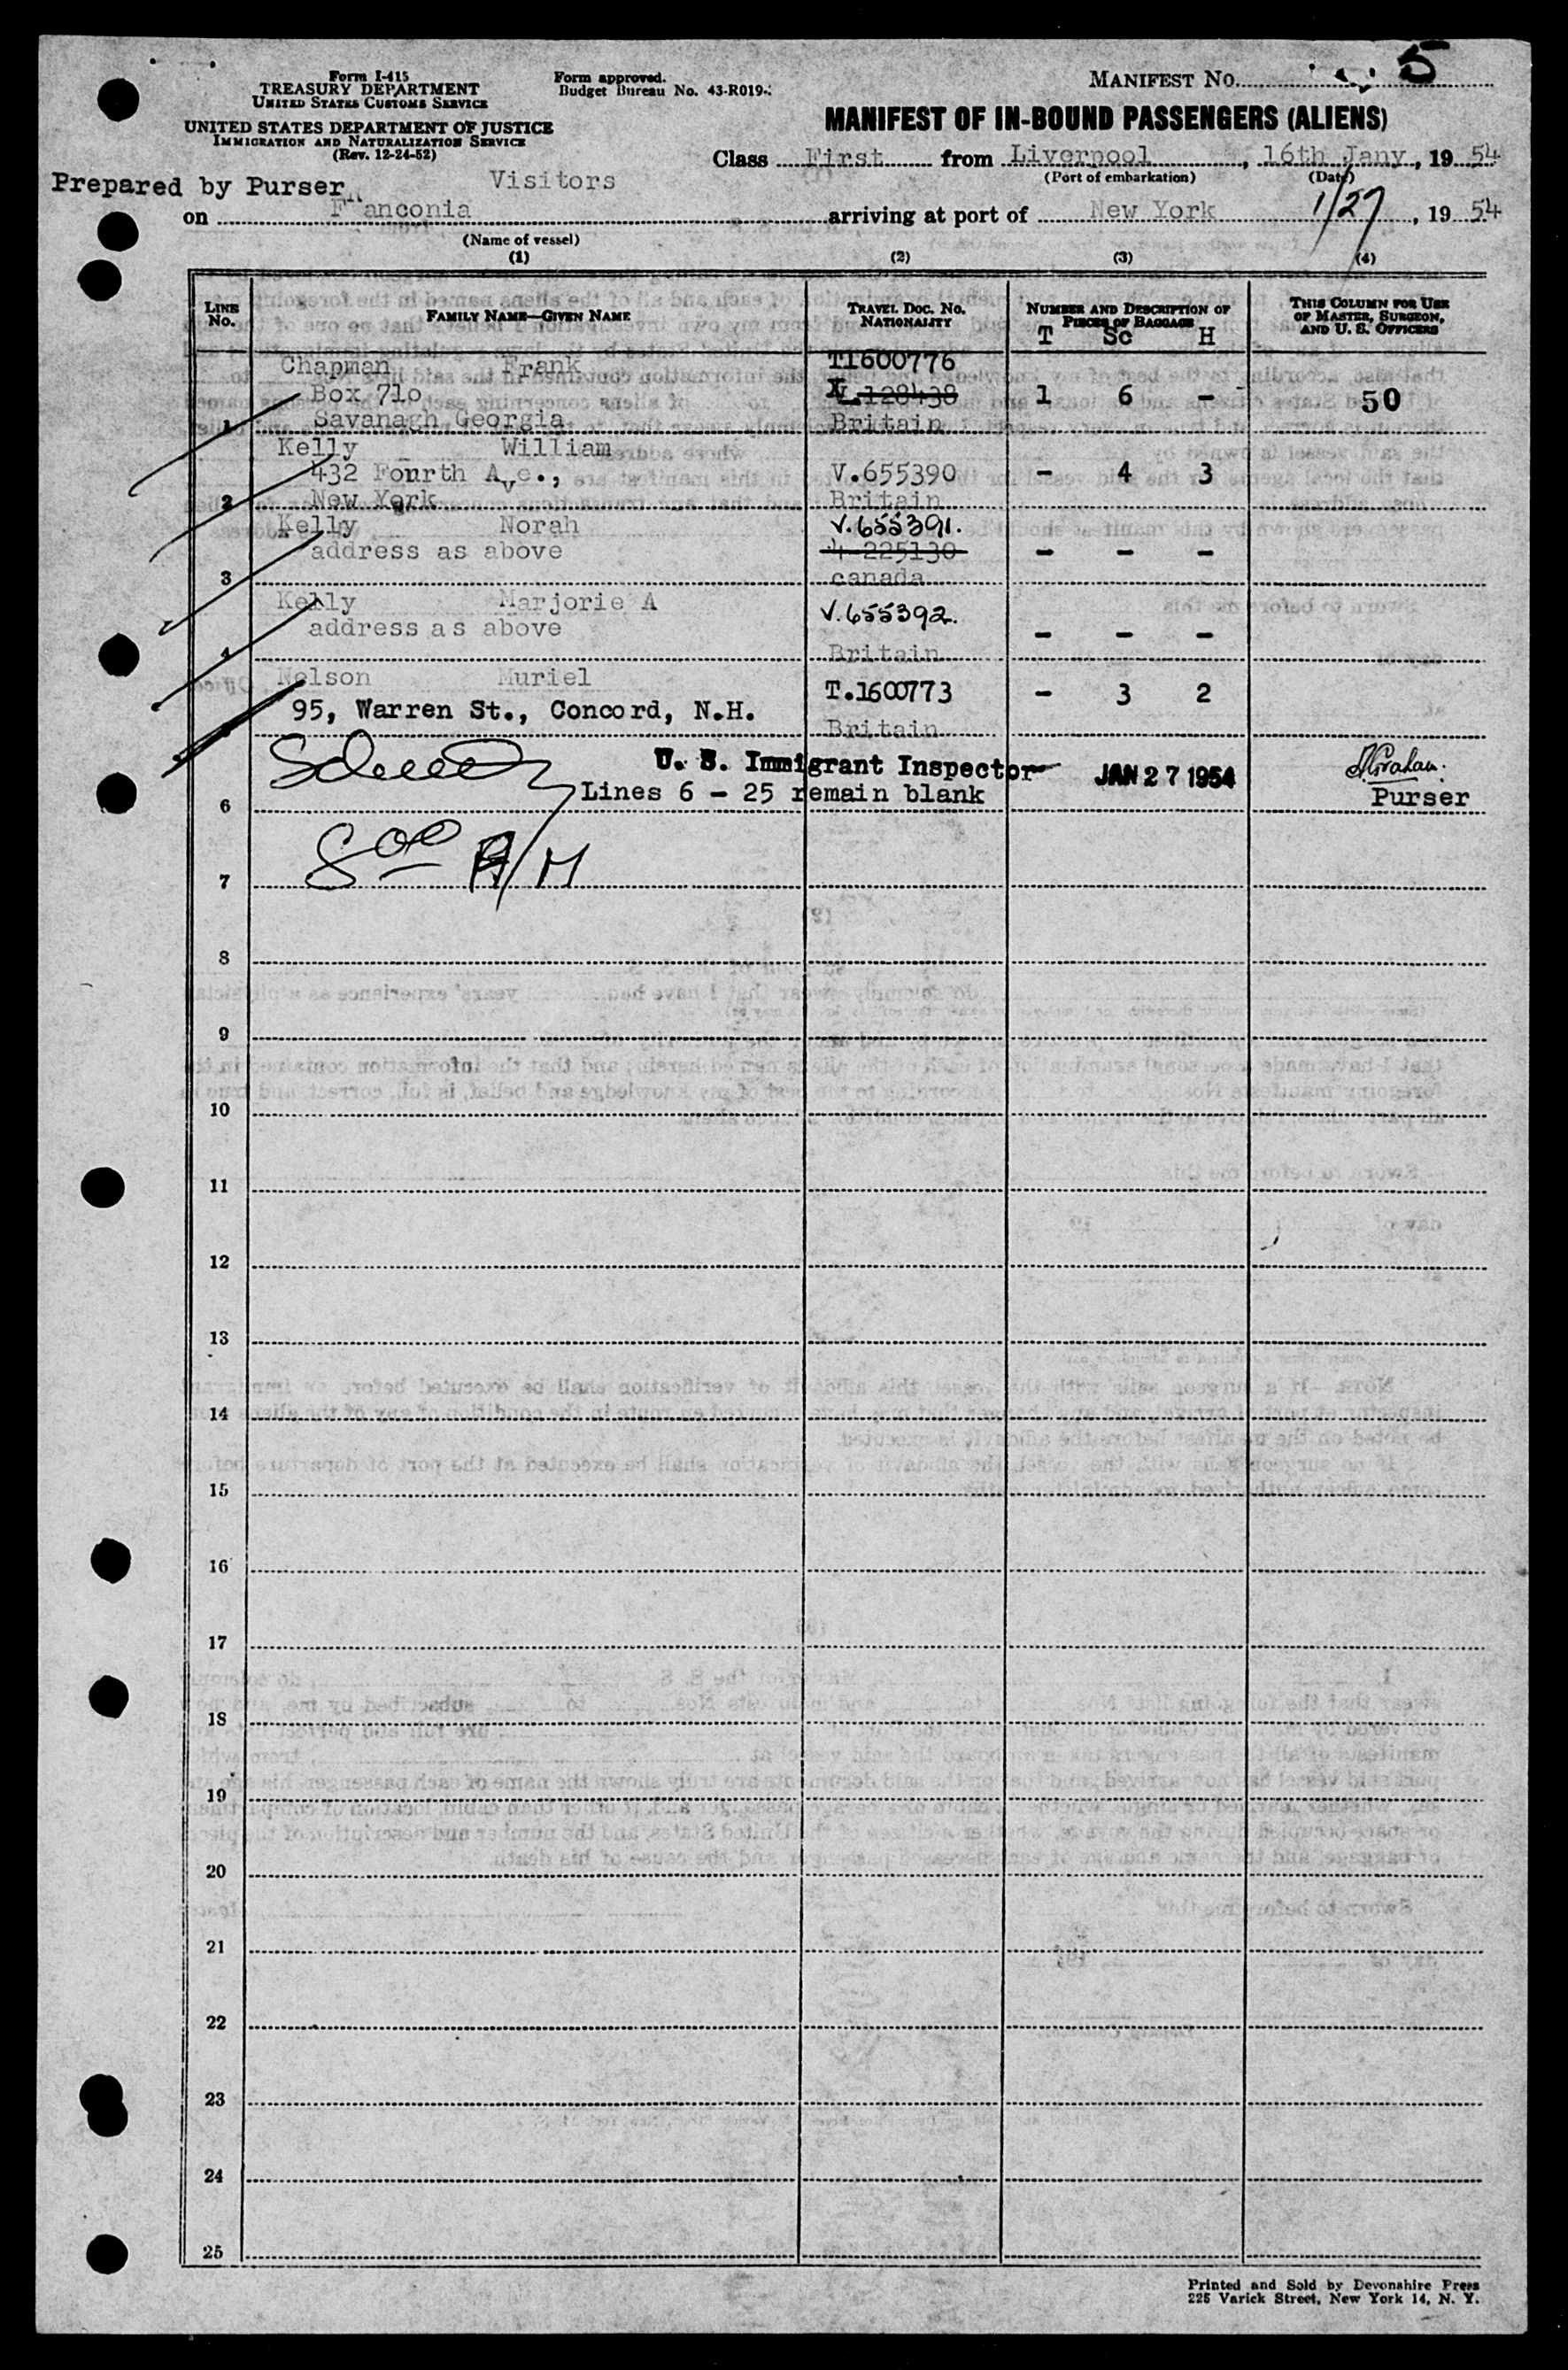 Form I-415
TREASURY DEPARTMENT
UNITED STATES CUSTOMS SERVICE
UNITED STATES DEPARTMENT OF JUSTICE
IMMIGRATION AND NATURALIZATION SERVICE
(Rev. 12-24-52)
Form approved.
Budget Bureau No. 43-R019-
MANIFEST NO. 5
MANIFEST OF IN-BOUND PASSENGERS (ALIENS)
Class First from Liverpool, 16th Jany, 19 54
(Port of embarkation) (Date)
Prepared by Purser Visitors
on Franconia arriving at port of New York 1/27, 19 54
(Name of vessel)
(1) (2) (3) (4)
LINE No. FAMILY NAME—GIVEN NAME TRAVEL DOC. NO. NATIONALITY NUMBER AND DESCRIPTION OF PIECES OF BAGGAGE THIS COLUMN FOR USE OF MASTER, SURGEON, AND U. S. OFFICERS
T Sc H
Chapman Frank T1600776
Box 710 V.128438 1 6 - 50
1 Savanagh Georgia Britain
Kelly William
432 Fourth Ave., V.655390 - 4 3
2 New York Britain
Kelly Norah V.655391.
address as above 4-225130 - - -
3 canada
Kelly Marjorie A V.655392.
address as above - - -
4 Britain
Nelson Muriel T.1600773 - 3 2
95, Warren St., Concord, N.H.
Britain
U. S. Immigrant Inspector JAN 27 1954
6 Lines 6 - 25 remain blank Purser
7
8
9
10
11
12
13
14
15
16
17
18
19
20
21
22
23
24
25
Printed and Sold by Devonshire Press
225 Varick Street, New York 14, N. Y.